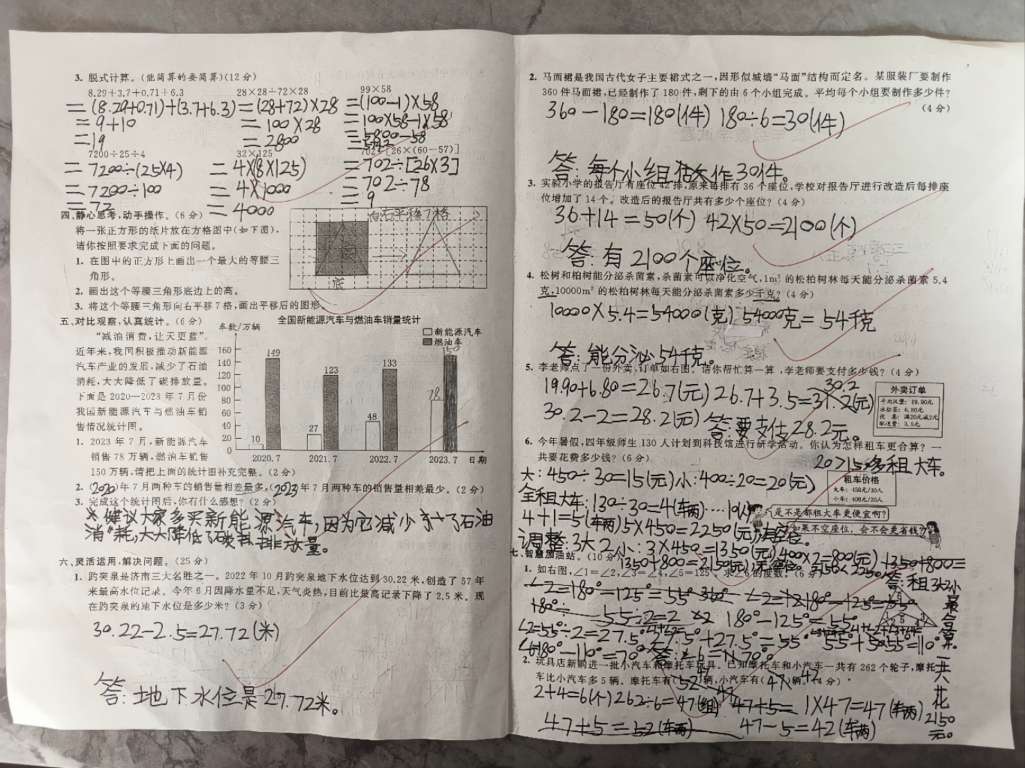 3. 脱式计算。(能简算的要简算)(12分)
8.29+3.7+0.71+6.3 28×28+72×28 99×58
=(8.29+0.71)+(3.7+6.3) =(28+72)×28 =(100-1)×58
=9+10 =100×28 =100×58-1×58
=19 =2800 =5800-58
7200÷25÷4 32×125 702÷[26×(60-57)]
=7200÷(25×4) =4×(8×125) =702÷[26×3]
=7200÷100 =4×1000 =702÷78
=72 =4000 =9
四、静心思考,动手操作。(6分)
将一张正方形的纸片放在方格图中(如下图),
请你按照要求完成下面的问题。
1. 在图中的正方形上画出一个最大的等腰三
角形。
2. 画出这个等腰三角形底边上的高。
3. 将这个等腰三角形向右平移7格,画出平移后的图形。
向右平移7格
底
五、对比观察,认真统计。(6分)
“减油消费,让天更蓝”。
近年来,我国积极推动新能源
汽车产业的发展,减少了石油
消耗,大大降低了碳排放量。
下面是2020—2023年7月份
我国新能源汽车与燃油车销
售情况统计图。
1. 2023年7月,新能源汽车
销售78万辆,燃油车销售
150万辆,请把上面的统计图补充完整。(2分)
全国新能源汽车与燃油车销量统计
车数/万辆
新能源汽车
燃油车
160
140
120
100
80
60
40
20
0
10 149 27 123 48 133 78 150
2020.7 2021.7 2022.7 2023.7 日期
2. (2020)年7月两种车的销售量相差最多,(2023)年7月两种车的销售量相差最少。(2分)
3. 完成这个统计图后,你有什么感想?(2分)
建议大家多买新能源汽车,因为它减少了石油
消耗,大大降低了碳排放量。
六、灵活运用,解决问题。(25分)
1. 趵突泉是济南三大名胜之一。2022年10月趵突泉地下水位达到30.22米,创造了57年
来最高水位记录。今年6月因降水量不足,天气炎热,目前比最高记录下降了2.5米。现
在趵突泉的地下水位是多少米?(3分)
30.22-2.5=27.72(米)
答:地下水位是27.72米。
2. 马面裙是我国古代女子主要裙式之一,因形似城墙“马面”结构而定名。某服装厂要制作
360件马面裙,已经制作了180件,剩下的由6个小组完成。平均每个小组要制作多少件?
(4分)
360-180=180(件) 180÷6=30(件)
答:每个小组作30件。
3. 实验小学的报告厅有座位42排,原来每排有36个座位,学校对报告厅进行改造后每排座
位增加了14个。改造后的报告厅共有多少个座位?(4分)
36+14=50(个) 42×50=2100(个)
答:有2100个座位。
4. 松树和柏树能分泌杀菌素,杀菌素可以净化空气,1m²的松柏树林每天能分泌杀菌素5.4
克,10000m²的松柏树林每天能分泌杀菌素多少千克?(4分)
10000×5.4=54000(克) 54000克=54千克
答:能分泌54千克。
5. 李老师点了一份外卖,订单如右图。请你帮忙算一算,李老师要支付多少钱?(4分)
19.90+6.80=26.7(元) 26.7+3.5=30.2(元)
30.2-2=28.2(元) 答:要支付28.2元。
外卖订单
6. 今年暑假,四年级师生130人计划到科技馆进行研学活动。你认为怎样租车更合算?一
共要花费多少钱?(6分)
20>15多租大车。
大:450÷30=15(元) 小:400÷20=20(元)
租车价格
大车:450元/30人
小车:400元/20人
全租大车:130÷30=4(辆)……10(人)
是不是都租大车更便宜啊?
4+1=5(辆) 5×450=2250(元)
如果不空座位,会不会更省钱?
调整:3大2小:3×450=1350(元) 400×2=800(元)
1350+800=2150(元)
答:租3大2小最合算。一共花2150元。
七、智慧加油站。(10分)
1. 如右图,∠1=∠2,∠3=∠4,∠5=125°,求∠6的度数。(6分)
180°-125°=55°
27.5°+27.5°=55° 55°+55°=110°
180°-110°=70°
2. 玩具店新购进一批小汽车和摩托车玩具。已知摩托车和小汽车一共有262个轮子,摩托
车比小汽车多5辆。摩托车有(47)辆,小汽车有(42)辆。(4分)
2+4=6(个) 262÷6=47(组) 1×47=47(车两)
47+5=52(车两) 47-5=42(车两)